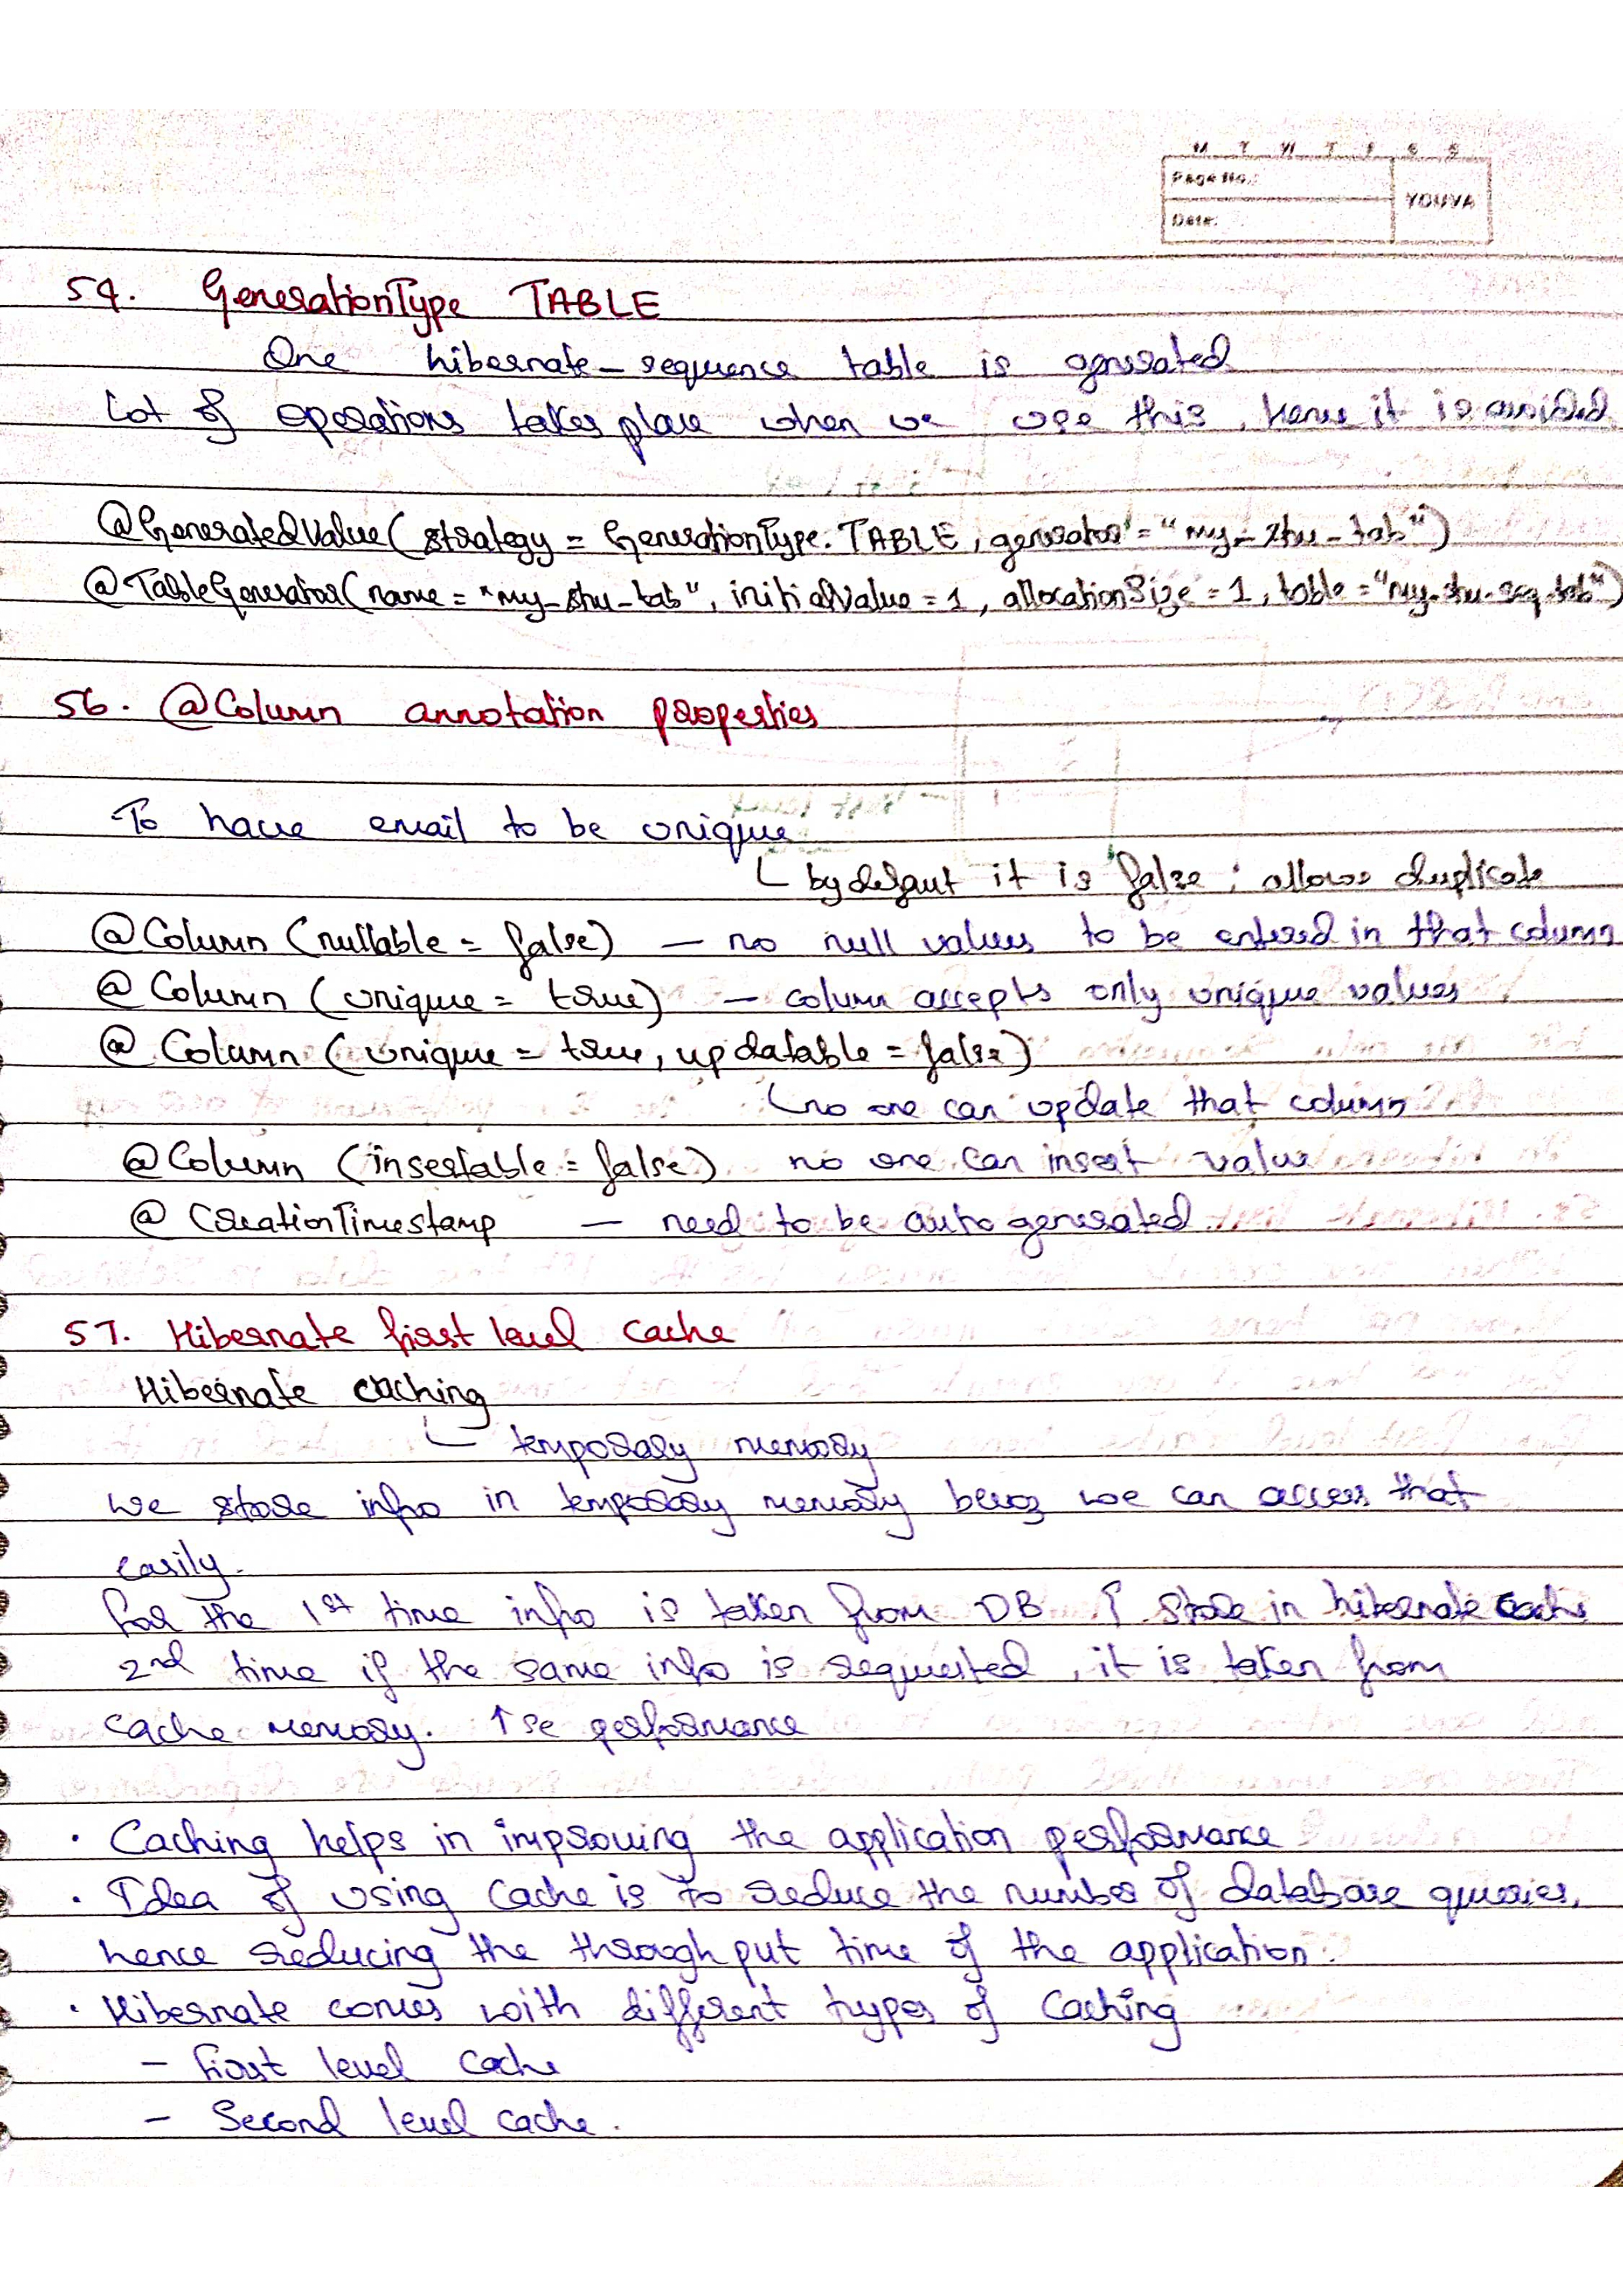 M T W T F S S
Page No.:
YOUVA
Date:
54. GenerationType TABLE
One hibernate-sequence table is generated
Lot of operations takes place when we use this, hence it is avoided.
@GeneratedValue(strategy = GenerationType.TABLE, generator = "my_stu_tab")
@TableGenerator(name = "my_stu_tab", initialValue = 1, allocationSize = 1, table = "my_stu_seq_tab")
56. @Column annotation properties
To have email to be unique
by defaut it is false ; allows duplicate
@Column (nullable = false) — no null values to be entered in that column
@ Column (unique = true) — column accepts only unique values
@ Column (unique = true, updatable = false)
no one can update that column
@Column (insertable = false) no one can insert value
@ CreationTimestamp — need to be auto generated
57. Hibernate first level cache
Hibernate caching
temporary memory
we store info in temporary memory becoz we can access that
easily.
for the 1st time info is taken from DB & store in hibernate cache
2nd time if the same info is requested, it is taken from
cache memory. ↑se performance
• Caching helps in improving the application performance
• Idea of using cache is to reduce the number of database queries,
hence reducing the throughput time of the application.
• Hibernate comes with different types of Caching
– First level cache
– Second level cache.